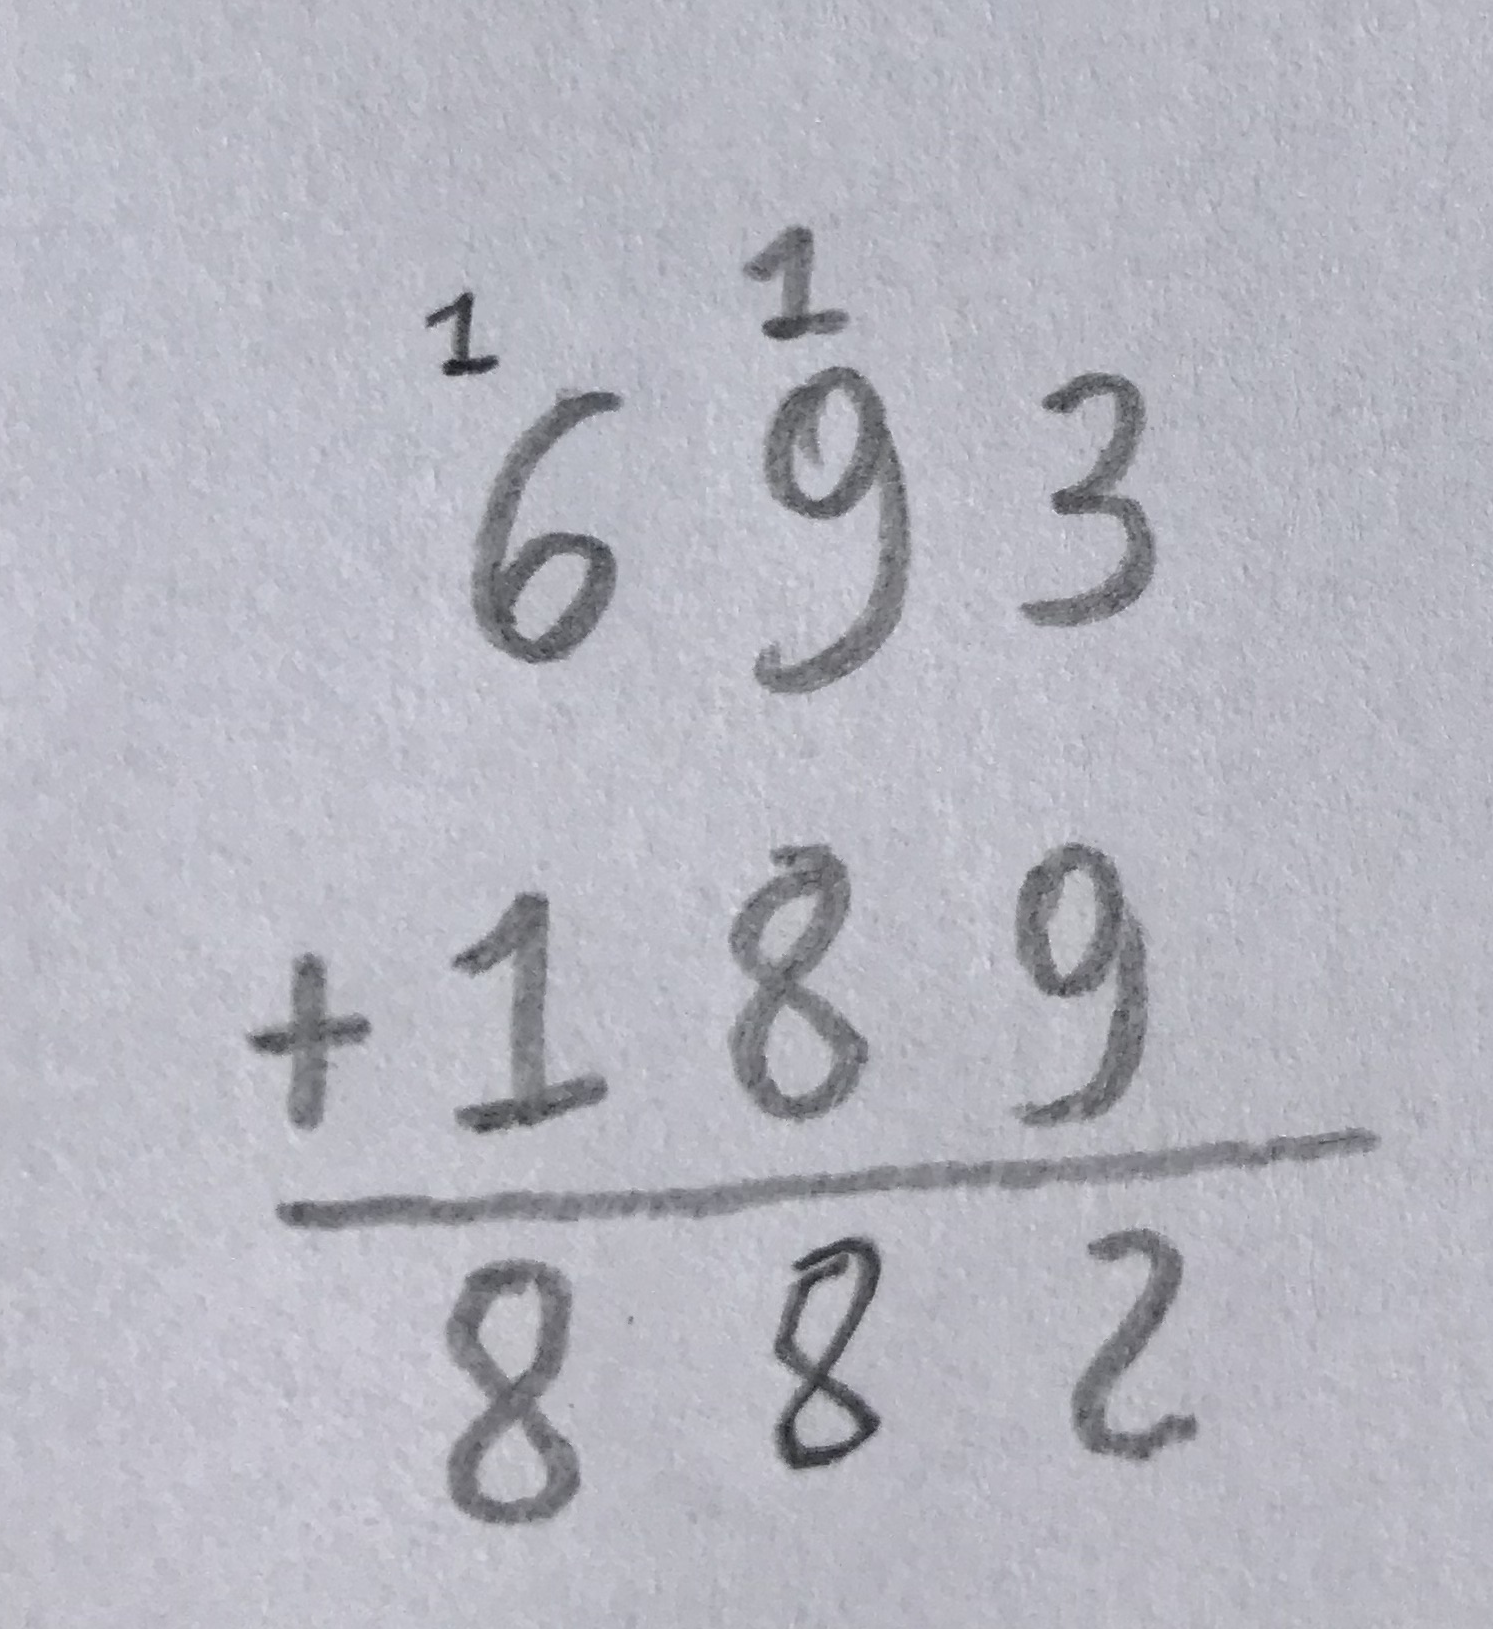 1 1
6 9 3
+ 1 8 9
8 8 2